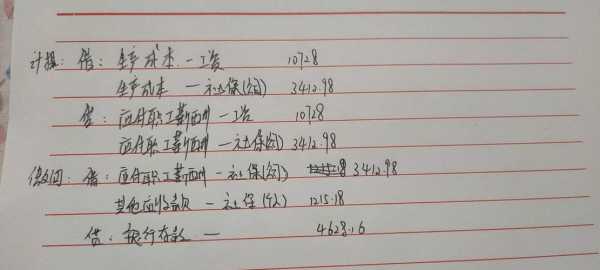 计提：借：生产成本 — 工资 10728
生产成本 — 社保(公司) 3412.98
贷：应付职工薪酬 — 工资 10728
应付职工薪酬 — 社保(公司) 3412.98
缴纳：借：应付职工薪酬 — 社保(公司) 3412.98
其他应收款 — 社保(个人) 1215.18
贷：银行存款 — 4628.16